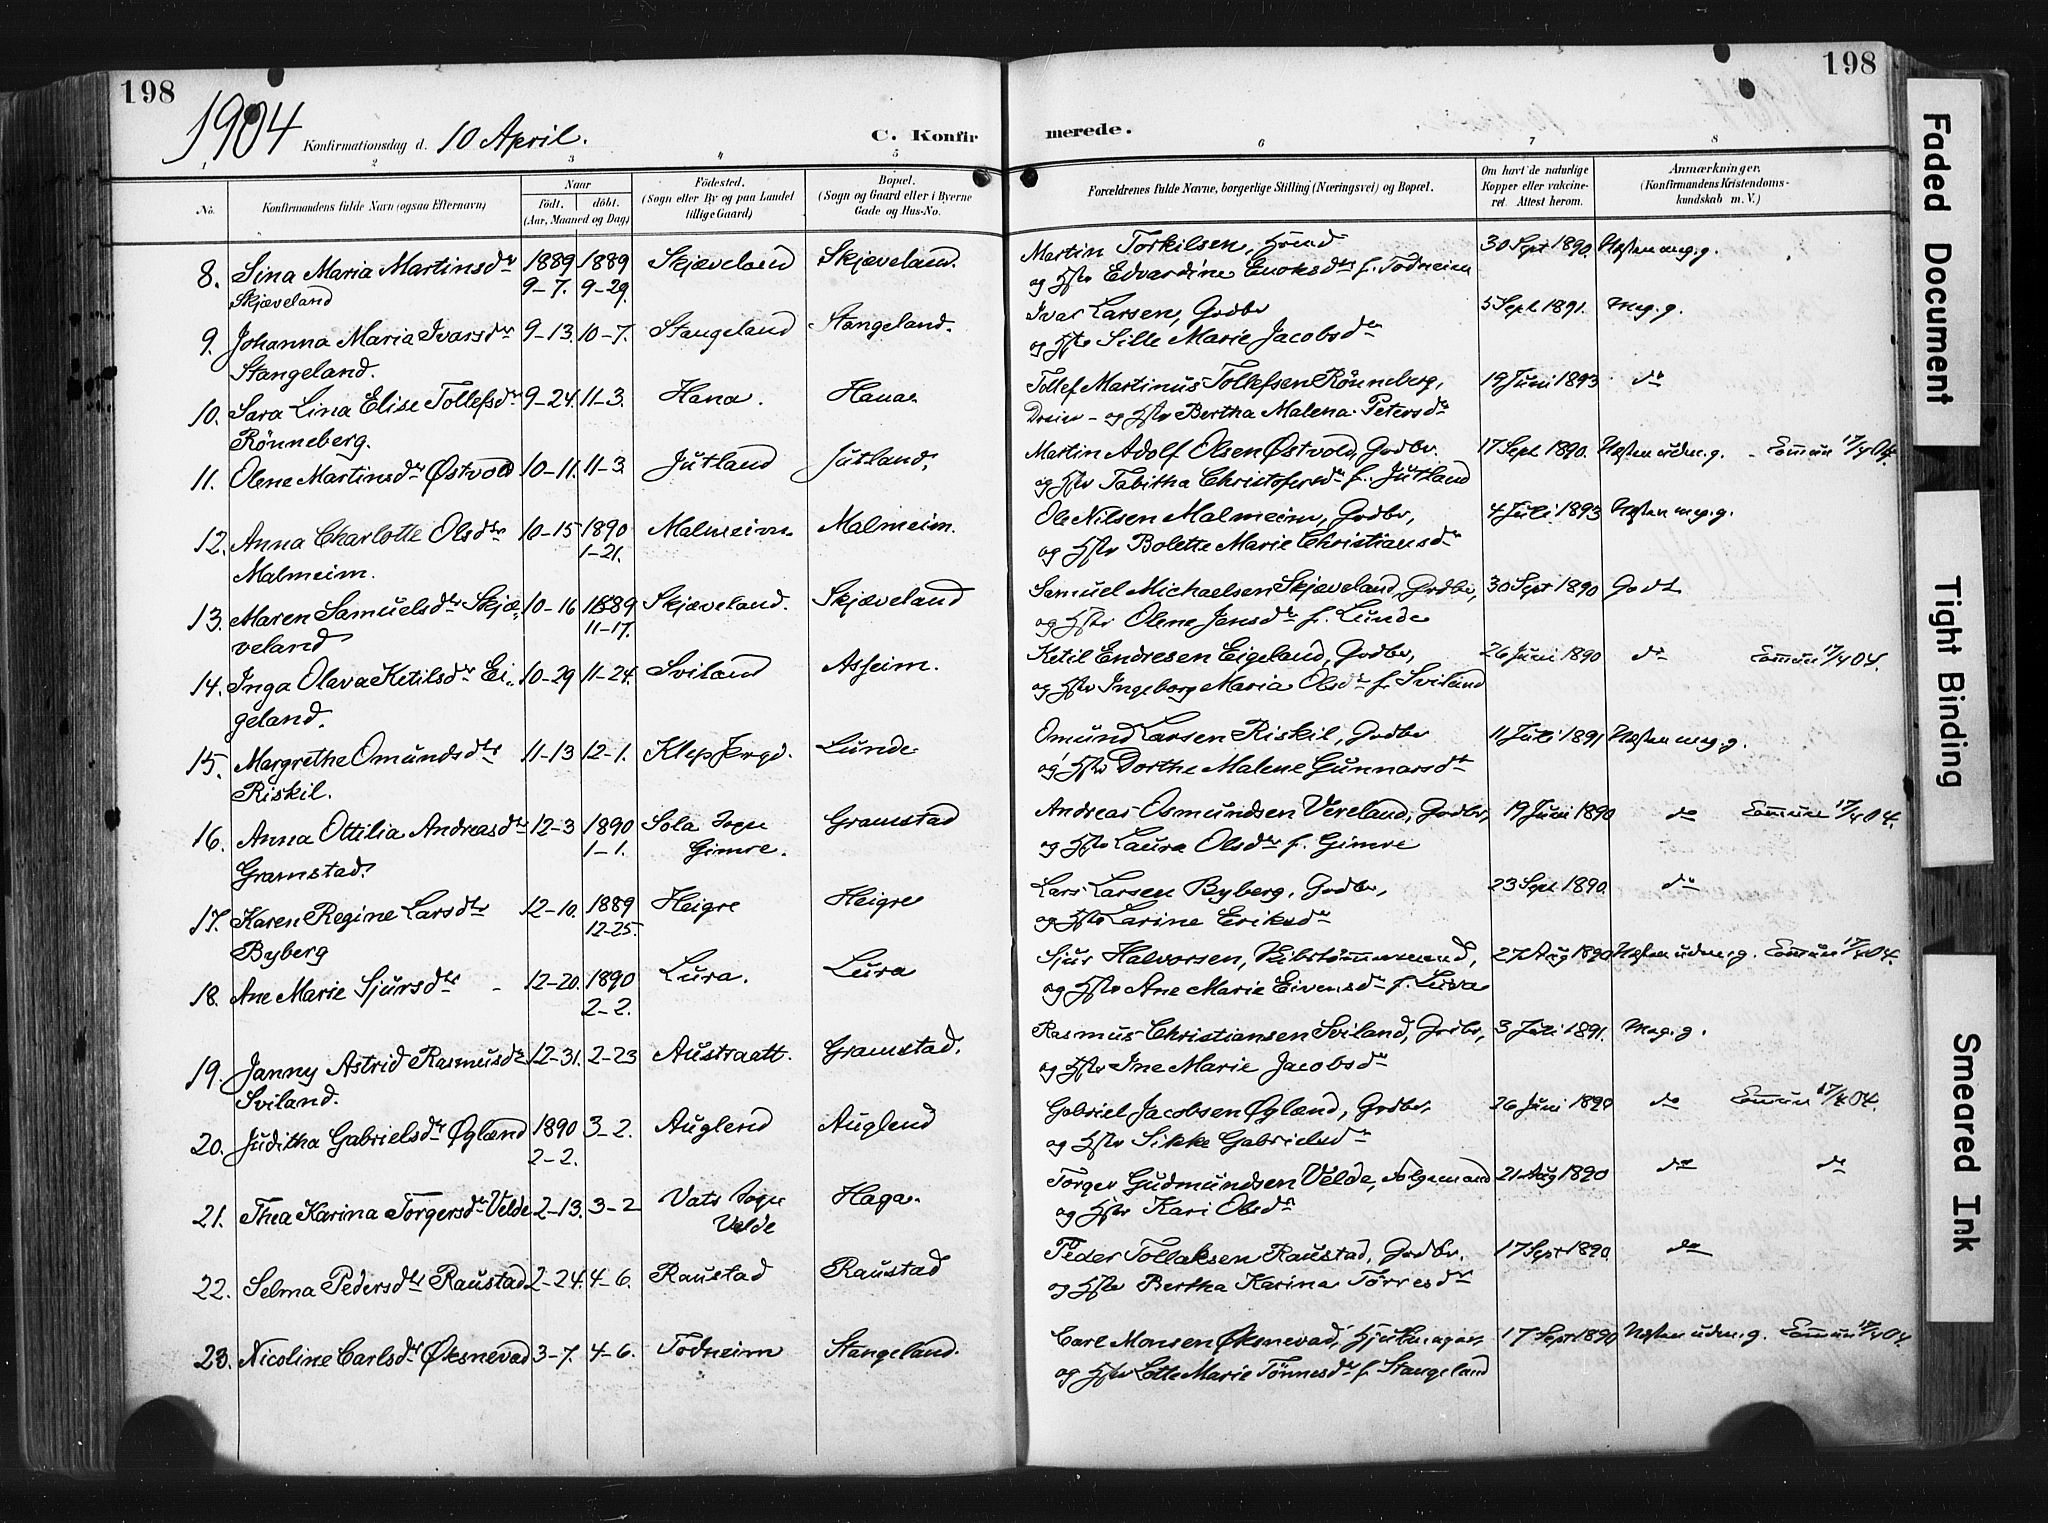 198
198
1904 Konfirmationsdag d. 10 April.
C. Konfir
merede.
1 2 3 4 5 6 7 8
No. Konfirmandens fulde Navn (ogsaa Efternavn) Naar Født. døbt. (Aar, Maaned og Dag) Fødested. (Sogn eller By og paa Landet tillige Gaard) Bopæl. (Sogn og Gaard eller i Byerne Gade og Hus-No. Forældrenes fulde Navne, borgerlige Stilling (Næringsvei) og Bopæl. Om havt de naturlige Kopper eller vakcineret. Attest herom. Anmærkninger. (Konfirmandens Kristendomskundskab m. V.)
8. Sina Maria Martinsdtr 1889 1889 Skjæveland Skjæveland. Martin Torkilsen, 30 Sept 1890. Næsten meg. g.
Skjæveland 9-7. 9-29. og Hstr Edvardine Enoksdtr f. Todneim
9. Johanna Maria Ivarsdtr 9-13. 10-7. Stangeland Stangeland. Ivar Larsen, Grdbr 5 Sept 1891. Meg. g.
Stangeland. og Hstr Sille Marie Jacobsdtr
10. Sara Lina Elise Tollefsdtr 9-24. 11-3. Hana. Hana. Tollef Martinus Tollefsen Rönneberg, 19 Juni 1893 do
Rönneberg. Dreier - og Hstr Bertha Malena Petersdtr
11. Olene Martinsdtr Østvold 10-11. 11-3. Jutland Jutland. Martin Adolf Olsen Østvold, Grdbr. 17 Sept 1890. Næsten udm. g. - Commun 17/4 04.
og Hstr Tabitha Christofersdtr f. Jutland
12. Anna Charlotte Olsdtr 10-15 1890 Malmeim Malmeim. Ole Nilsen Malmeim, Grdbr, 4 Juli 1893 Næsten meg. g.
Malmeim. 1-21. og Hstr Bolette Marie Christiansdtr
13. Maren Samuelsdtr Skjæ 10-16 1889 Skjæveland. Skjæveland Samuel Michaelsen Skjæveland, Grdbr, 30 Sept 1890 Godt
veland 11-17. og Hstr Olene Jansdtr f. Lunde
14. Inga Olava Ketilsdtr Ei 10-29 11-24. Sviland Asheim. Ketil Endresen Eigeland, Grdbr, 26 Juni 1890 do Commun 17/4 04.
geland. og Hstr Ingeborg Maria Olsdtr f. Sviland
15. Margrethe Omundsdtr 11-13 12-1. Klep Prgd. Lunde Omund Larsen Riskil, Grdbr 11 Juli 1891 Næsten meg. g.
Riskil. og Hstr Dorthe Malene Gunnarsdtr
16. Anna Ottilia Andreasdtr 12-3 1890 Sola Sogn Gramstad Andreas Osmundsen Vereland, Grdbr, 19 Juni 1890 do Commun 17/4 04.
Gramstad. 1-1. Gimre. og Hstr Laura Olsdtr f. Gimre
17. Karen Regine Larsdtr 12-10. 1889 Heigre Heigre Lars Larsen Byberg, Grdbr, 23 Sept 1890. do
Byberg 12-25. og Hstr Larine Eriksdtr
18. Ane Marie Sjursdtr - 12-20. 1890 Lura. Lura Sjur Halvorsen, 27 Aug 1890 Næsten udm. g. Commun 17/4 04.
2-2. og Hstr Ane Marie Eivensdtr f. Lura
19. Janny Astrid Rasmusdtr 12-31. 2-23 Austraatt. Gramstad. Rasmus Christiansen Sviland, Grdbr, 3 Juli 1891. Meg. g.
Sviland. og Hstr Ine Marie Jacobsdtr
20. Juditha Gabrielsdtr Øglænd 1890 3-2. Auglend Auglend Gabriel Jacobsen Øglænd, Grdbr, 26 Juni 1890 do Commun 17/4 04.
2-2. og Hstr Sikke Gabrielsdtr
21. Thea Karina Torgersdtr Velde 2-13. 3-2 Vats Sogn Haga. Torger Gudmundsen Velde, 21 Aug 1890 do do
Velde og Hstr Kari Olsdtr
22. Selma Pedersdtr Raustad 2-24. 4-6. Raustad Raustad Peder Tollaksen Raustad, Grdbr. 17 Sept 1890. do
og Hstr Bertha Karina Tørresdtr
23. Nicoline Carlsdtr Øksnevad 3-7. 4-6. Todneim Stangeland. Carl Monsen Øksnevad, Hjulmager, 17 Sept 1890 Næsten udm. g. Commun 17/4 04.
og Hstr Lotte Marie Tönnesdtr f. Stangeland
Faded Document
Tight Binding
Smeared Ink